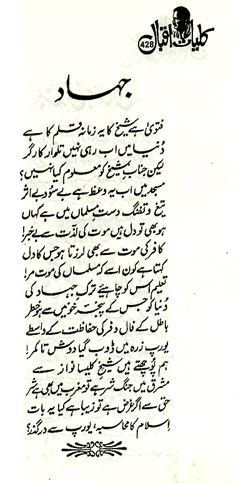 کلیات اقبال
428
جہاد
فتویٰ ہے شیخ کا یہ زمانہ قلم کا ہے
دُنیا میں اب رہی نہیں تلوار کارگر
لیکن جنابِ شیخ کو معلوم کیا نہیں؟
مسجد میں اب یہ وعظ ہے بے سُود و بے اثر
تیغ و تفنگ دستِ مسلماں میں ہے کہاں
ہو بھی، تو دل ہیں موت کی لذّت سے بے خبر!
کافر کی موت سے بھی لرزتا ہو جس کا دل
کہتا ہے کون اُسے کہ مسلماں کی موت مر!
تعلیم اُس کو چاہیے ترکِ جہاد کی
دُنیا کو جس کے پنجۂ خونیں سے ہو خطر
باطل کے فال و فر کی حفاظت کے واسطے
یورپ زرہ میں ڈوب گیا دوش تا کمر!
ہم پُوچھتے ہیں شیخِ کلیسا نواز سے
مشرق میں جنگ شر ہے تو مغرب میں بھی ہے شر
حق سے اگر غرض ہے تو زیبا ہے کیا یہ بات
اِسلام کا محاسبہ، یورپ سے درگذر؟